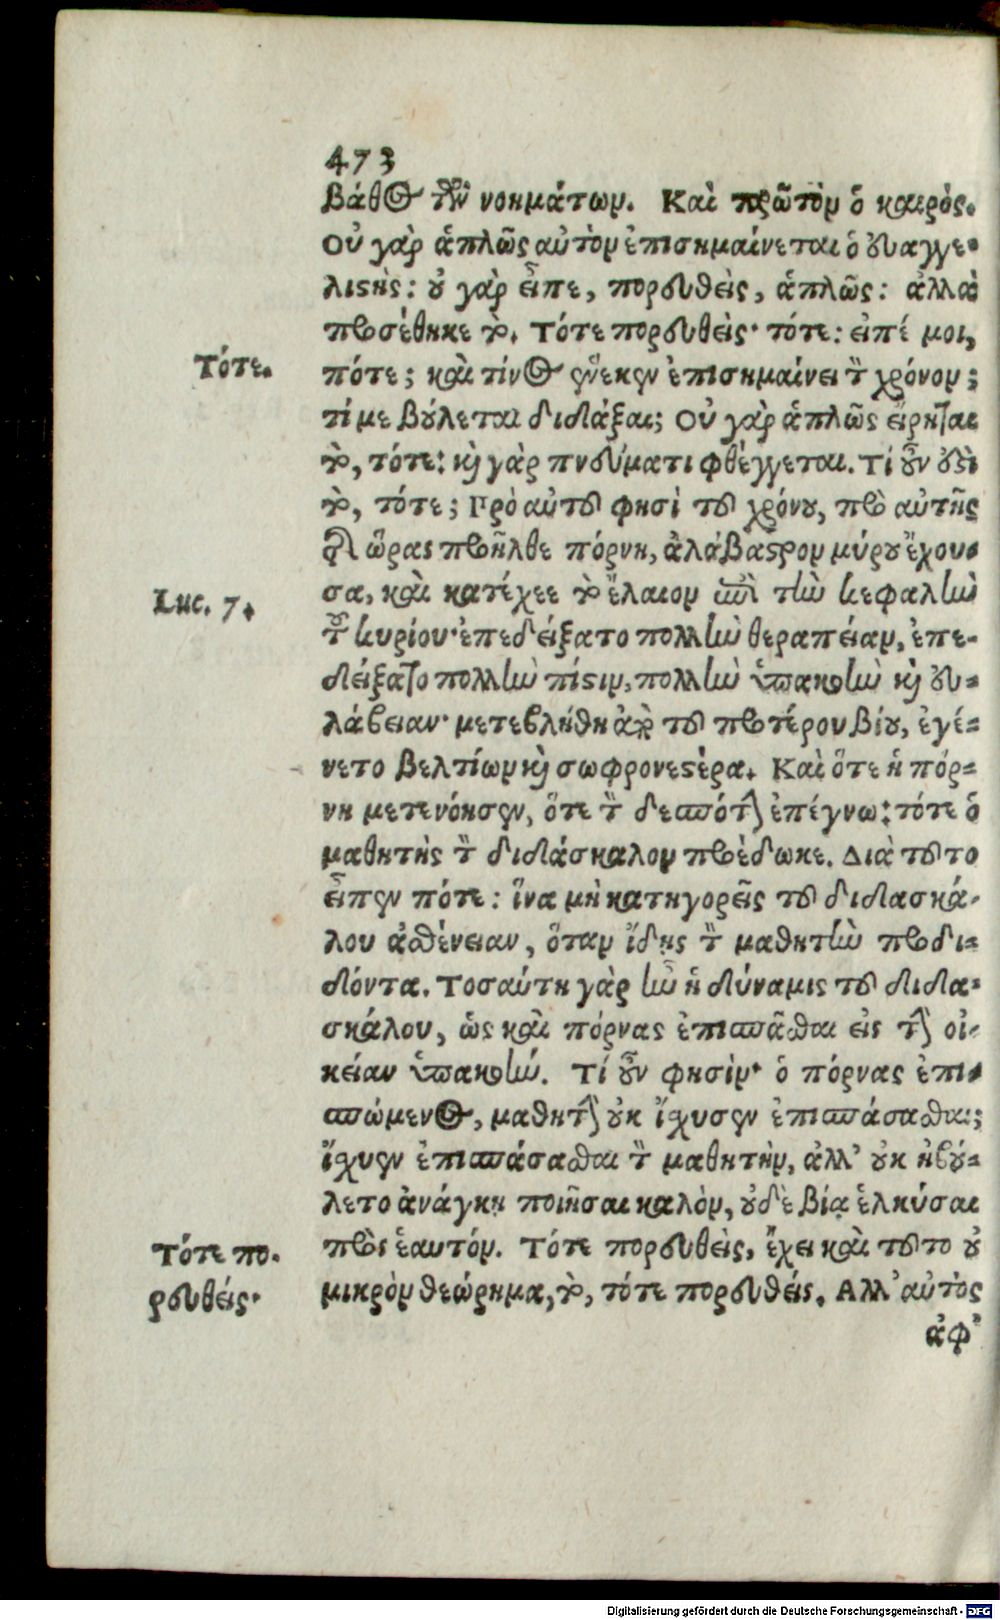 473
βάθος τῶν νοημάτων. Καὶ πρῶτον ὁ καιρός.
Οὐ γὰρ ἁπλῶς αὐτὸν ἐπισημαίνεται ὁ εὐαγγε-
λιστής: οὐ γὰρ εἶπε, πορευθεὶς, ἁπλῶς: ἀλλὰ
προσέθηκε τὸ, Τότε πορευθείς· τότε: εἰπέ μοι,
Τότε.
πότε; καὶ τίνος ἕνεκεν ἐπισημαίνει τὸν χρόνον;
τί με βούλεται διδάξαι; Οὐ γὰρ ἁπλῶς εἴρηται
τὸ, τότε: καὶ γὰρ πνεύματι φθέγγεται. Τί οὖν ἐστὶ
τὸ, τότε; Πρὸ αὐτοῦ φησὶ τοῦ χρόνου, πρὸ αὐτῆς
τῆς ὥρας προσῆλθε πόρνη, ἀλάβαστρον μύρου ἔχου-
Luc. 7.
σα, καὶ κατέχεε τὸ ἔλαιον ἐπὶ τὴν κεφαλὴν
τοῦ κυρίου· ἐπεδείξατο πολλὴν θεραπείαν, ἐπε-
δείξατο πολλὴν πίστιν, πολλὴν ὑπακοὴν καὶ εὐ-
λάβειαν· μετεβλήθη ἀπὸ τοῦ προτέρου βίου, ἐγέ-
νετο βελτίων καὶ σωφρονεστέρα. Καὶ ὅτε ἡ πόρ-
νη μετενόησεν, ὅτε τὸν δεσπότην ἐπέγνω: τότε ὁ
μαθητὴς τὸν διδάσκαλον προέδωκε. Διὰ τοῦτο
εἶπεν πότε: ἵνα μὴ κατηγορεῖς τοῦ διδασκά-
λου ἀσθένειαν, ὅταν ἴδῃς τὸν μαθητὴν προδι-
δόντα. Τοσαύτη γὰρ ἦν ἡ δύναμις τοῦ διδα-
σκάλου, ὡς καὶ πόρνας ἐπισπᾶσθαι εἰς τὴν οἰ-
κείαν ὑπακοήν. Τί οὖν φησὶν· ὁ πόρνας ἐπι-
σπώμενος, μαθητὴν οὐκ ἴσχυσεν ἐπισπάσασθαι;
ἴσχυεν ἐπισπάσασθαι τὸν μαθητὴν, ἀλλ’ οὐκ ἠβού-
λετο ἀνάγκῃ ποιῆσαι καλὸν, οὐδὲ βίᾳ ἑλκύσαι
Τότε πο-
ρευθείς·
πρὸς ἑαυτόν. Τότε πορευθεὶς, ἔχει καὶ τοῦτο οὐ
μικρὸν θεώρημα, τὸ, τότε πορευθείς. Αλλ’ αὐτὸς
ἀφ’
Digitalisierung gefördert durch die Deutsche Forschungsgemeinschaft - DFG